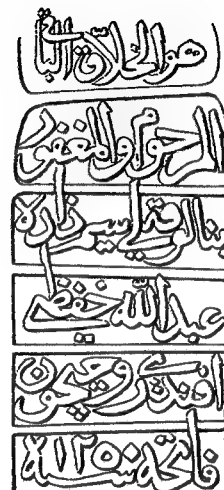 هو الخلاق الباقى
المرحوم والمغفور
اسير زاده
عبد الله حفظى
افندى روحيچون
فاتحه سنه ١٢٥٠